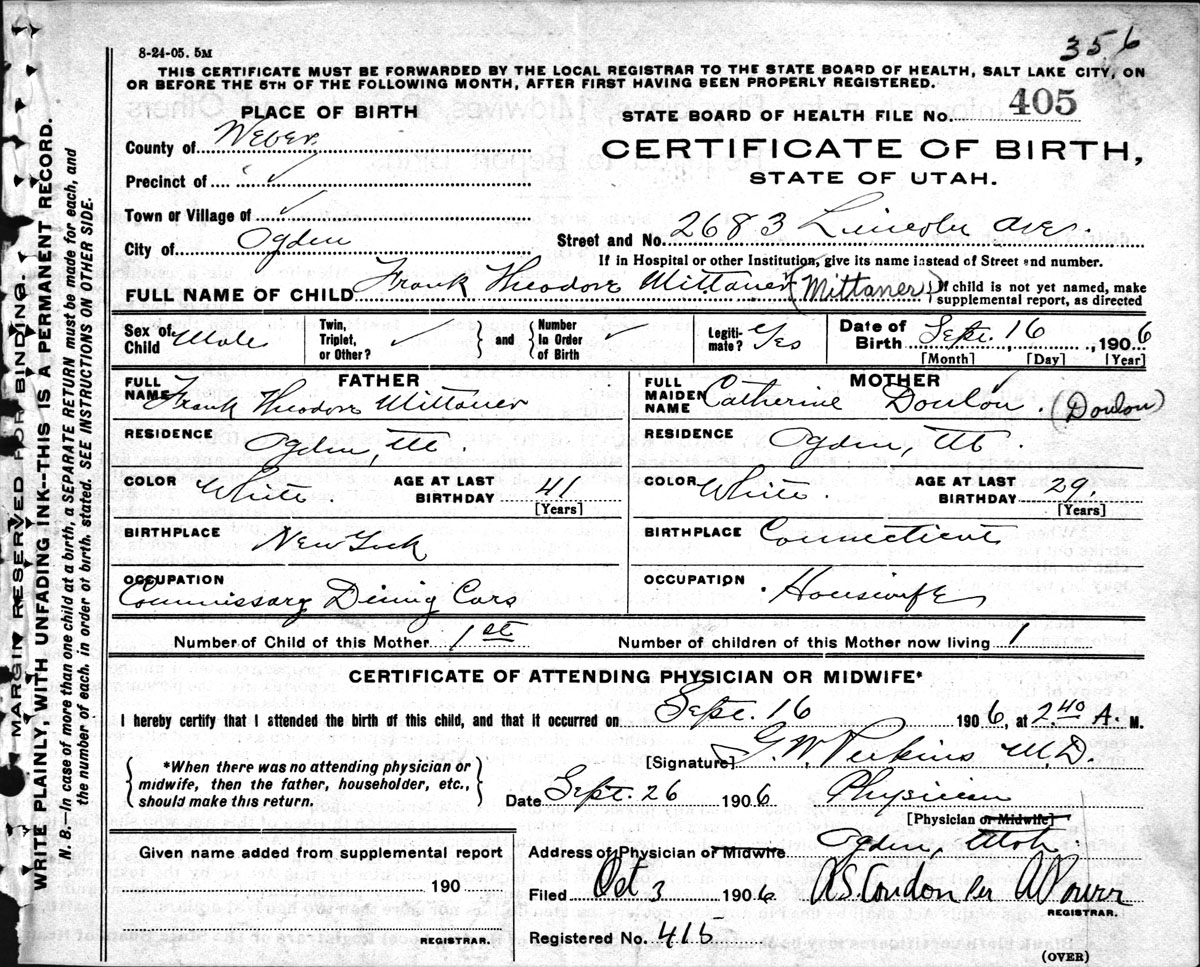 356
8-24-05. 5M
THIS CERTIFICATE MUST BE FORWARDED BY THE LOCAL REGISTRAR TO THE STATE BOARD OF HEALTH, SALT LAKE CITY, ON
OR BEFORE THE 5TH OF THE FOLLOWING MONTH, AFTER FIRST HAVING BEEN PROPERLY REGISTERED.
PLACE OF BIRTH
STATE BOARD OF HEALTH FILE No. 405
County of Weber
CERTIFICATE OF BIRTH,
Precinct of ✓
STATE OF UTAH.
Town or Village of ✓
City of Ogden
Street and No. 2683 Lincoln Ave.
If in Hospital or other Institution, give its name instead of Street and number.
FULL NAME OF CHILD Frank Theodore Mittaner (Mittaner) If child is not yet named, make supplemental report, as directed
Sex of Child Male Twin, Triplet, or Other? ✓ and Number In Order of Birth ✓ Legiti-mate? Yes Date of Birth Sept. 16, 1906
[Month] [Day] [Year]
FATHER
FULL NAME Frank Theodore Mittaner
RESIDENCE Ogden, Ut.
COLOR White AGE AT LAST BIRTHDAY 41
[Years]
BIRTHPLACE New York
OCCUPATION Commissary Dining Cars
MOTHER
FULL MAIDEN NAME Catherine Doulon. (Doulon)
RESIDENCE Ogden, Ut.
COLOR White. AGE AT LAST BIRTHDAY 29.
[Years]
BIRTHPLACE Connecticut
OCCUPATION Housewife
Number of Child of this Mother 1st Number of children of this Mother now living 1
CERTIFICATE OF ATTENDING PHYSICIAN OR MIDWIFE*
I hereby certify that I attended the birth of this child, and that it occurred on Sept. 16 1906, at 2.40 A. M.
[Signature] G. W. Perkins M.D.
*When there was no attending physician or
midwife, then the father, householder, etc.,
should make this return.
Date Sept. 26 1906 Physician
[Physician or Midwife]
Given name added from supplemental report
190
REGISTRAR.
Address of Physician or Midwife Ogden, Utah
Filed Oct 3 1906 R S Condon per
REGISTRAR.
Registered No. 415
(OVER)
MARGIN RESERVED FOR BINDING
WRITE PLAINLY, WITH UNFADING INK---THIS IS A PERMANENT RECORD.
N. B.—In case of more than one child at a birth, a SEPARATE RETURN must be made for each, and
the number of each, in order of birth, stated. SEE INSTRUCTIONS ON OTHER SIDE.